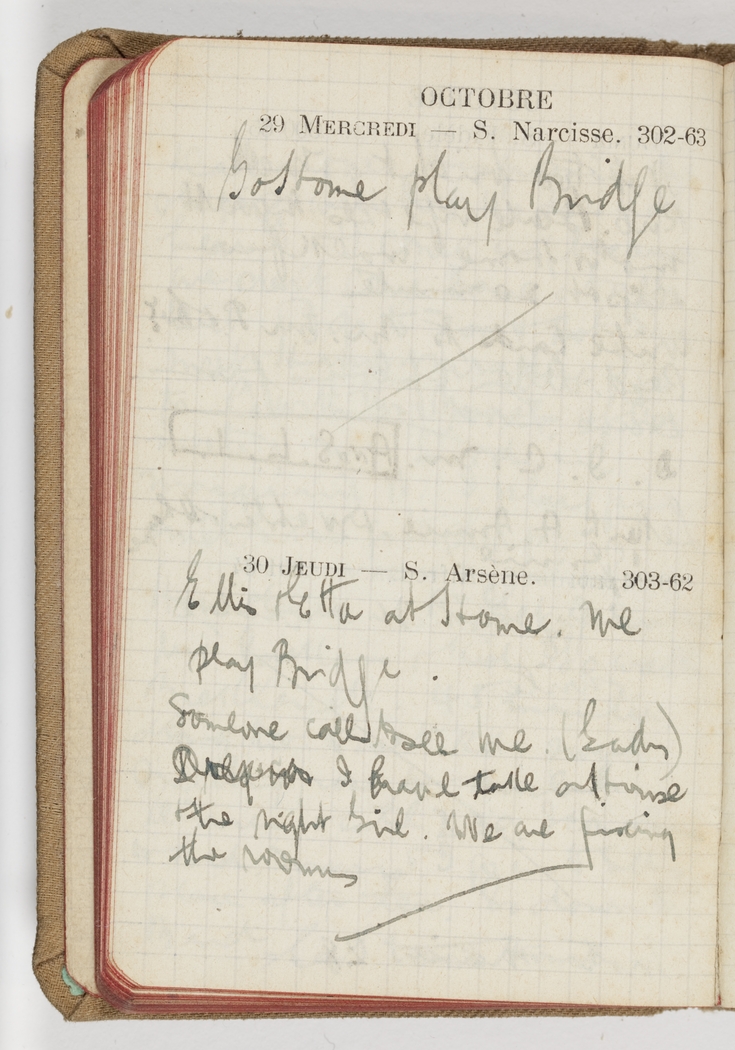 OCTOBRE
29 MERCREDI — S. Narcisse. 302-63
Go Home play Bridge
30 JEUDI — S. Arsène. 303-62
Ellis & Etta at Home. We
play Bridge.
Someone called to see me. (Eady)
I have take
the right Girl. We are fixing
the rooms